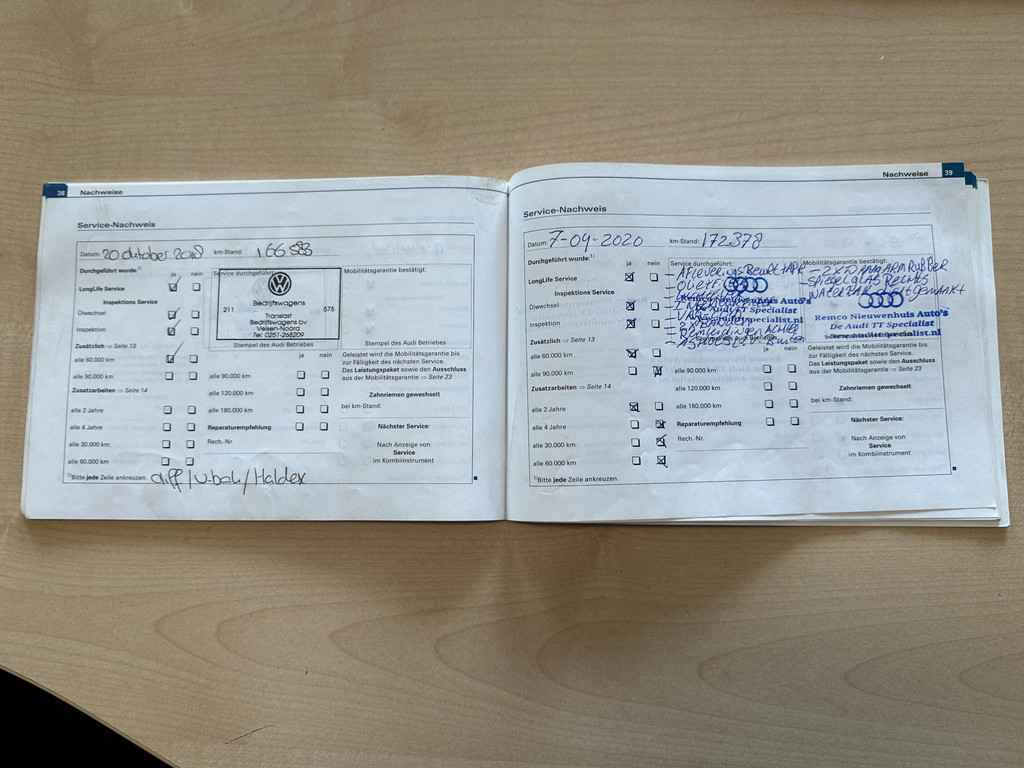 38 Nachweise
Service-Nachweis
Datum: 20 oktober 2018 km-Stand: 166 583
Durchgeführt wurde:¹⁾ ja nein Service durchgeführt: Mobilitätsgarantie bestätigt:
LongLife Service
Inspektions Service
Ölwechsel
Inspektion
Bedrijfswagens
211 575
Translast
Bedrijfswagens bv
Velsen-Noord
Tel: 0251-268209
Zusätzlich ⇒ Seite 13 Stempel des Audi Betriebes Stempel des Audi Betriebes
alle 60.000 km ja nein Geleistet wird die Mobilitätsgarantie bis
zur Fälligkeit des nächsten Service.
Das Leistungspaket sowie den Ausschluss
aus der Mobilitätsgarantie ⇒ Seite 23
alle 90.000 km alle 90.000 km
Zusatzarbeiten ⇒ Seite 14 alle 120.000 km Zahnriemen gewechselt
alle 2 Jahre alle 180.000 km bei km-Stand:
alle 4 Jahre Reparaturempfehlung Nächster Service:
alle 30.000 km Rech.-Nr. Nach Anzeige von
Service
alle 60.000 km im Kombiinstrument
¹⁾Bitte jede Zeile ankreuzen. diff / / Haldex
Nachweise 39
Service-Nachweis
Datum: 7-09-2020 km-Stand: 172378
Durchgeführt wurde:¹⁾ ja nein Service durchgeführt: Mobilitätsgarantie bestätigt:
LongLife Service
Inspektions Service
Ölwechsel
Inspektion
- 2x DRAAGARM RUBBER
- SPIEGELGLAS RECHTS
Remco Nieuwenhuis Auto's
De Audi TT Specialist
Zusätzlich ⇒ Seite 13
alle 60.000 km ja nein Geleistet wird die Mobilitätsgarantie bis
zur Fälligkeit des nächsten Service.
Das Leistungspaket sowie den Ausschluss
aus der Mobilitätsgarantie ⇒ Seite 23
alle 90.000 km alle 90.000 km
Zusatzarbeiten ⇒ Seite 14 alle 120.000 km Zahnriemen gewechselt
alle 2 Jahre alle 180.000 km bei km-Stand:
alle 4 Jahre Reparaturempfehlung Nächster Service:
alle 30.000 km Rech.-Nr. Nach Anzeige von
Service
alle 60.000 km im Kombiinstrument
¹⁾Bitte jede Zeile ankreuzen.